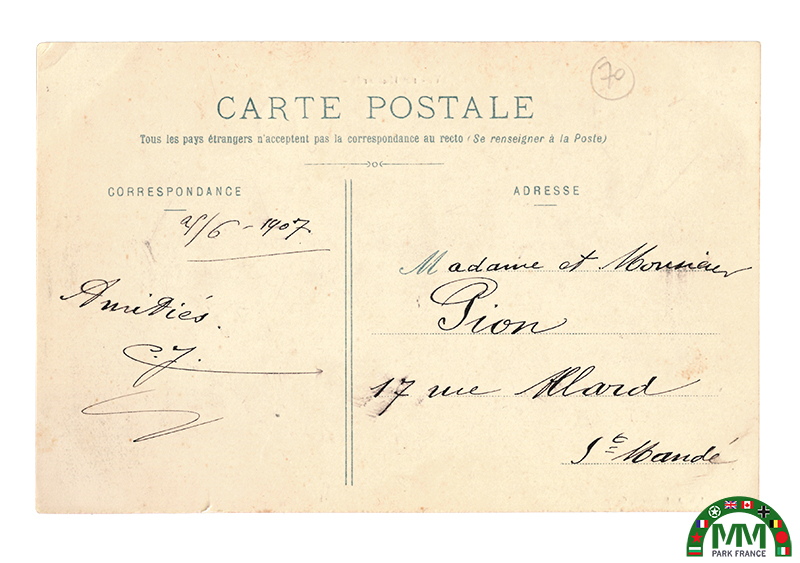 70
CARTE POSTALE
Tous les pays étrangers n'acceptent pas la correspondance au recto (Se renseigner à la Poste)
CORRESPONDANCE
ADRESSE
/6-1907
Amitiés.
C. J.
Madame et Monsieur
Pion
17 rue Allard
St Mandé
MM
PARK FRANCE